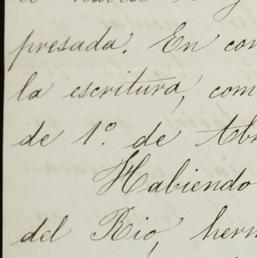 presada. En con
la escritura, com
de 1º. de Abr
Habiendo
del Rio, herm